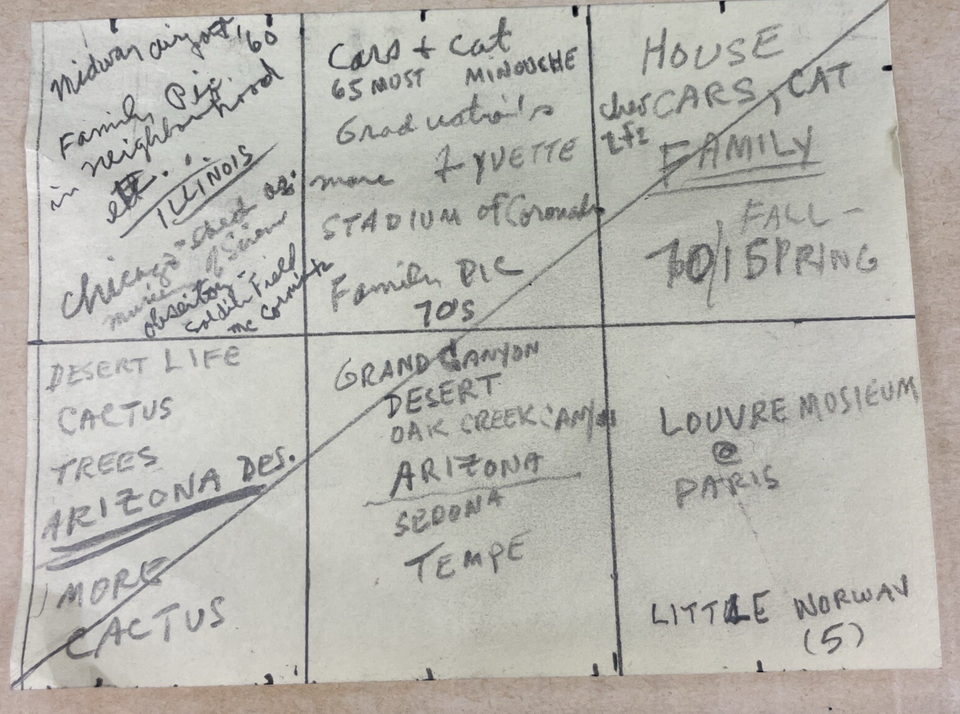 Midway airport, '60
Family Pix
in neighbourhood
ILLINOIS
Chicago
museum of Science
Soldier Field
Mc Cormick
Cars + Cat
65 MOST MINOUCHE
Graduation's
more YVETTE
STADIUM of
Family PIC
70'S
HOUSE
CARS, CAT
FAMILY
FALL -
70 / SPRING
DESERT LIFE
CACTUS
TREES
ARIZONA DES.
MORE
CACTUS
GRAND CANYON
DESERT
OAK CREEK
ARIZONA
SEDONA
TEMPE
LOUVRE MOSIEUM
@
PARIS
LITTLE NORWAY
(5)